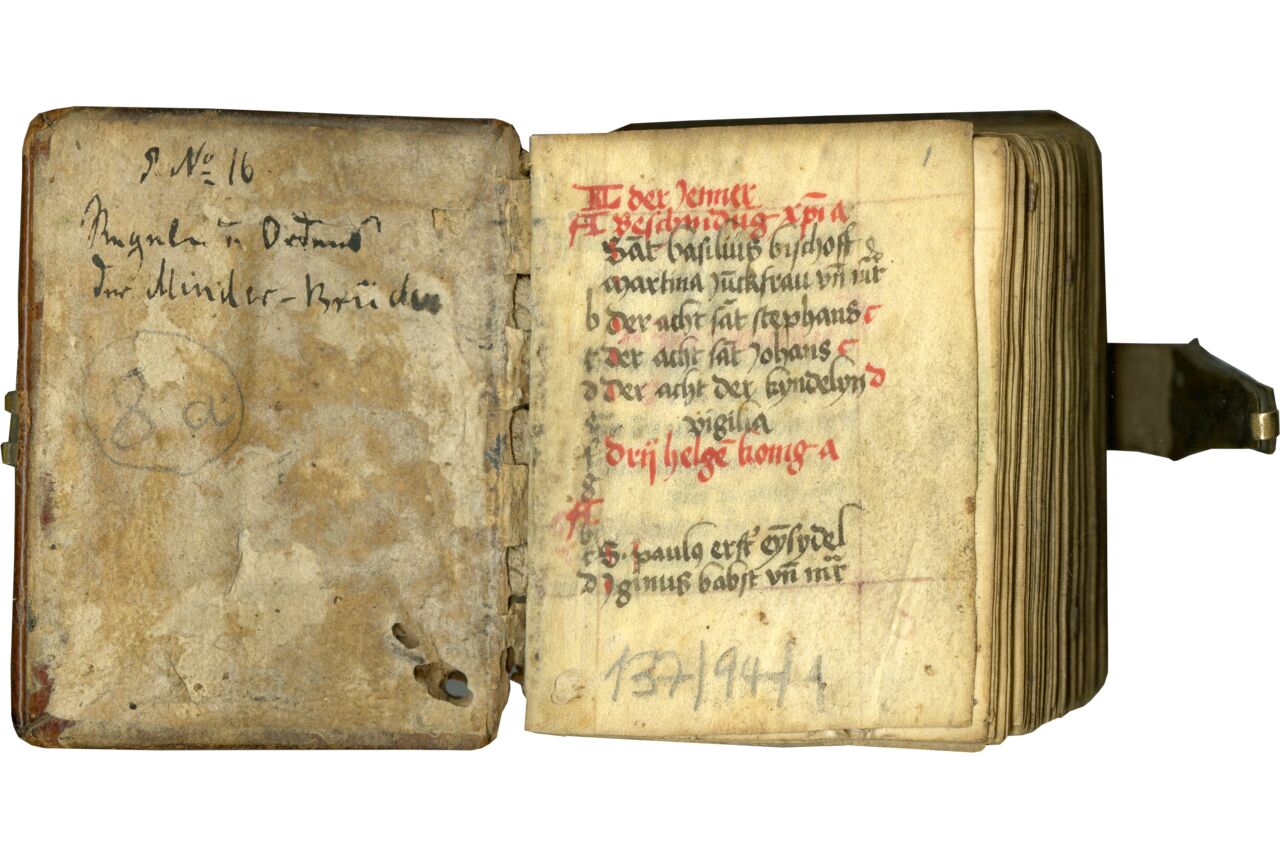 P. No 16
Regule u Ordens
der Minder-Brüder
8 a
1
KL der Jenner
A Beschnidūg xp̄i a
Sāt basilius bischoff
martina Jūckfrau vn̄ mr̄
b der acht sāt stephans c
c der acht sāt Johans c
d der acht der kyndelyn d
e vigilia
f drij helgē konig a
g
A
b
c S. paulꝯ erst eȳsydel
d Iginus babst vn̄ mr̄
137/94/1